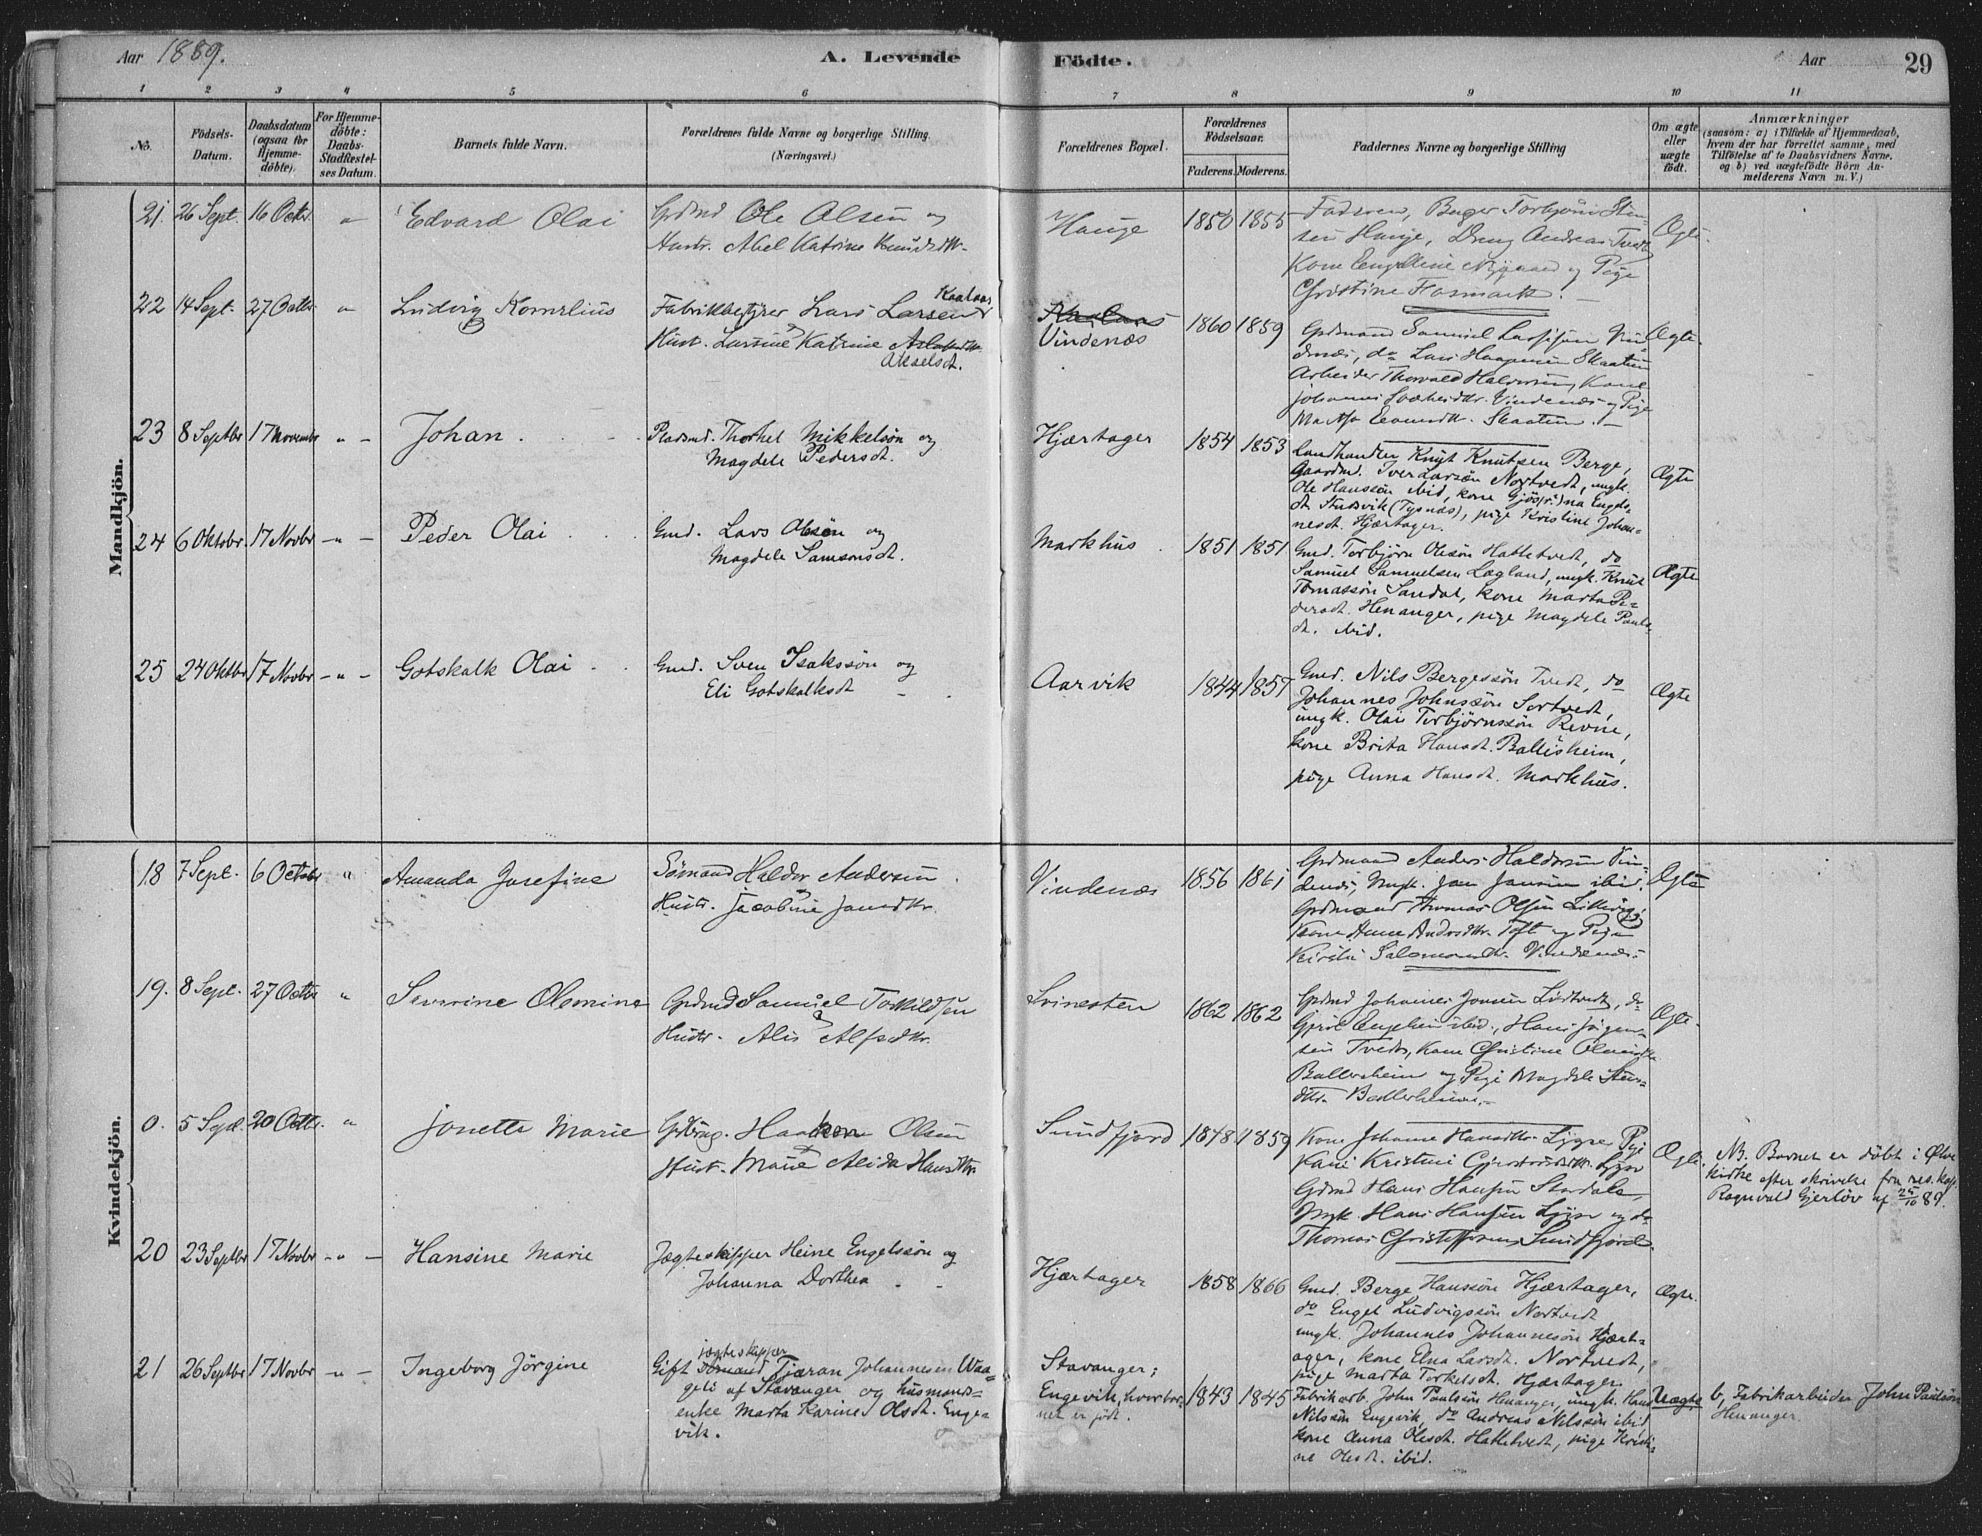 Aar 1889.
A. Levende
Födte.
Aar
29
1 2 3 4 5 6 7 8 9 10 11
No.
Födsels-
Datum.
Daabsdatum
(ogsaa for
Hjemme-
döbte).
For Hjemme-
döbte:
Daabs-
Stadfæstel-
ses Datum.
Barnets fulde Navn.
Forældrenes fulde Navne og borgerlige Stilling
(Næringsvei.)
Forældrenes Bopæl.
Forældrenes
Födselsaar.
Faderens. Moderens.
Faddernes Navne og borgerlige Stilling
Om ægte
eller
uægte
födt.
Anmærkninger
(saasom: a) i Tilfælde af Hjemmedaab,
hvem der har forrettet samme, med
Tilföielse af to Daabsvidners Navne,
og b) ved uægtefödte Börn An-
melderens Navn m. V.)
Mandkjön.
21. 26 Sept. 16 Octr. " Edvard Olai
Grdmd Ole Olsen og
Hustr. Abel Katrine Knudsdtr.
Hauge 1850 1855
Fadren, Bager Torbjörn Sten-
sen Hauge, Dreng Andreas Tvedt
Kone Engeline Nygaard og Pige
Christine Fosmark.
Ægte.
22 14 Sept. 27 Octbr " Ludvig Kornelius
Fabrikbestyrer Lars Larsen Kaalaas
Hust. Lassine Katrine
Akselsdt.
Vindenæs 1860 1859
Grdmand Samuel Lassesen Vin-
denæs, do Lars Haagensen Skaaten
Arbeider Thorvald Halvorsen, Kone
Johannes Vindenæs og Pige
Martha Skaaten.
Ægte.
23 8 Septbr 17 Novembr " - Johan.
Pladsmd. Thorkel Mikkelsön og
Magdele Pedersdt.
Hjærtager 1854 1853
Landhandler Knut Knutsen Berge,
Gaardmd. Iver Larsön Nortvedt, ungk.
Ole Hanssön ibid, kone Gjös(r?)na Engels-
dt. Stusvik (Tysnæs), pige Kristine Johan-
nesdt. Hjærtager.
Ægte
24 6 Oktobr. 17 Novbr - " - Peder Olai
Gmd. Lars Olsön og
Magdele Samsonsdt.
Markhus. 1851 1851
Gmd. Torbjörn Olesön Hattetvedt, do
Samuel Samuelsen Lægland, ungk. Knut
Tomassön Sandal, kone Marta Pe-
dersdt. Henanger, pige Magdele Pauls-
dt. ibid.
Ægte
25 24 Oktbr 17 Novbr - " - Gotskalk Olai
Gmd. Sven Isakssön og
Eli Gotskalksdt
Aarvik 1844 1857
Gmd. Nils Bergessön Tvedt, do
Johannes Johnssön Sortvedt,
ungk. Olai Torbjörnssön Revne,
kone Brita Hansdt. Ballesheim,
pige Anna Hansdt. Markhus.
Ægte
Kvindekjön.
18 7 Sept. 6 Octobr " Amanda Josefine
Sömand Haldor Andersen
Hustr. Jacobine Jansdtr.
Vindenæs 1856 1861
Grdmand Anders Haldorsen Vin-
denæs, Ungk. Jan Jansen ibid.
Grdmand Thomas Olsen
Kone Anne Andersdtr. Toft og Pige
Kirsti Salomonsdtr. Vindenæs.
Ægte
19. 8 Sept. 27 Octbr " Severine Olemine
Grdmd Samuel Torkildsen
Hustr. Alis Alfsdtr.
Svinesten 1862 1862
Grdmd Johannes Jonsen , do
ibid., Hans Jörgen-
sen Tvedt, Kone Christine
Ballersheim og Pige Magdele Stens-
dtr. Ballersheim.
Ægte.
0. 5 Sept. 20 Octbr. " Jonette Marie
Gdbrug. Haakon Olsen
Hust. Marie Alida Hansdtr.
Sundfjord 1848 1859
Kone Johanne Hansdtr. Lygre, Pige
Kari Kristine Lygre
Grdmd Hans Hansen Stordale,
Ungk. Hans Hansen Lygre og do
Thomas Christoffersen, Sundfjord.
Ægte.
NB. Barnet er döbt i Ølve
kirke efter skrivelse fra res. kap.
Ragnvald Gjerlöv af 25/10 89.
20 23 Septbr 17 Novbr - " - Hansine Marie
Jægteskipper Heine Engelssön og
Johanna Dorthea
Hjærtager 1858 1866
Gmd. Berge Hanssön Hjærtager,
do Engel Ludvigssön Nortvedt
ungk. Johannes Johannesön Hjært-
ager, kone Elna Larsdt. Nortvedt,
pige Marta Torkelsdt. Hjærtager.
Ægte.
21 26 Septbr 17 Novbr - " - Ingeborg Jörgine
jægteskipper
Gift Sömand Tjæran Johannesen Waa-
geli af Stavanger og husmands-
enke Marta Karine Olsdt. Enge-
vik.
Stavanger;
Engevik, hvor bar-
net er födt. 1843 1845
Fabrikarb. John Paulsön Henanger, ungk. Hans
Nilssön Engevik, do Andreas Nilssön ibid
kone Anna Olesdt. Hattetvedt, pige Kristi-
ne Olesdt. ibid.
Uægte
b, Fabrikarbeider John Paulsön
Henanger.